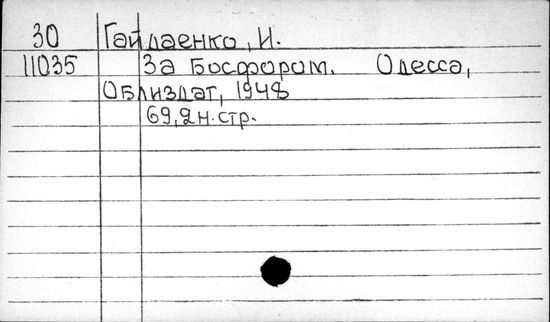 30 Гайдаенко, И.
11035 За Босфором. Одесса,
Облиздат, 1948
69,2н.стр.